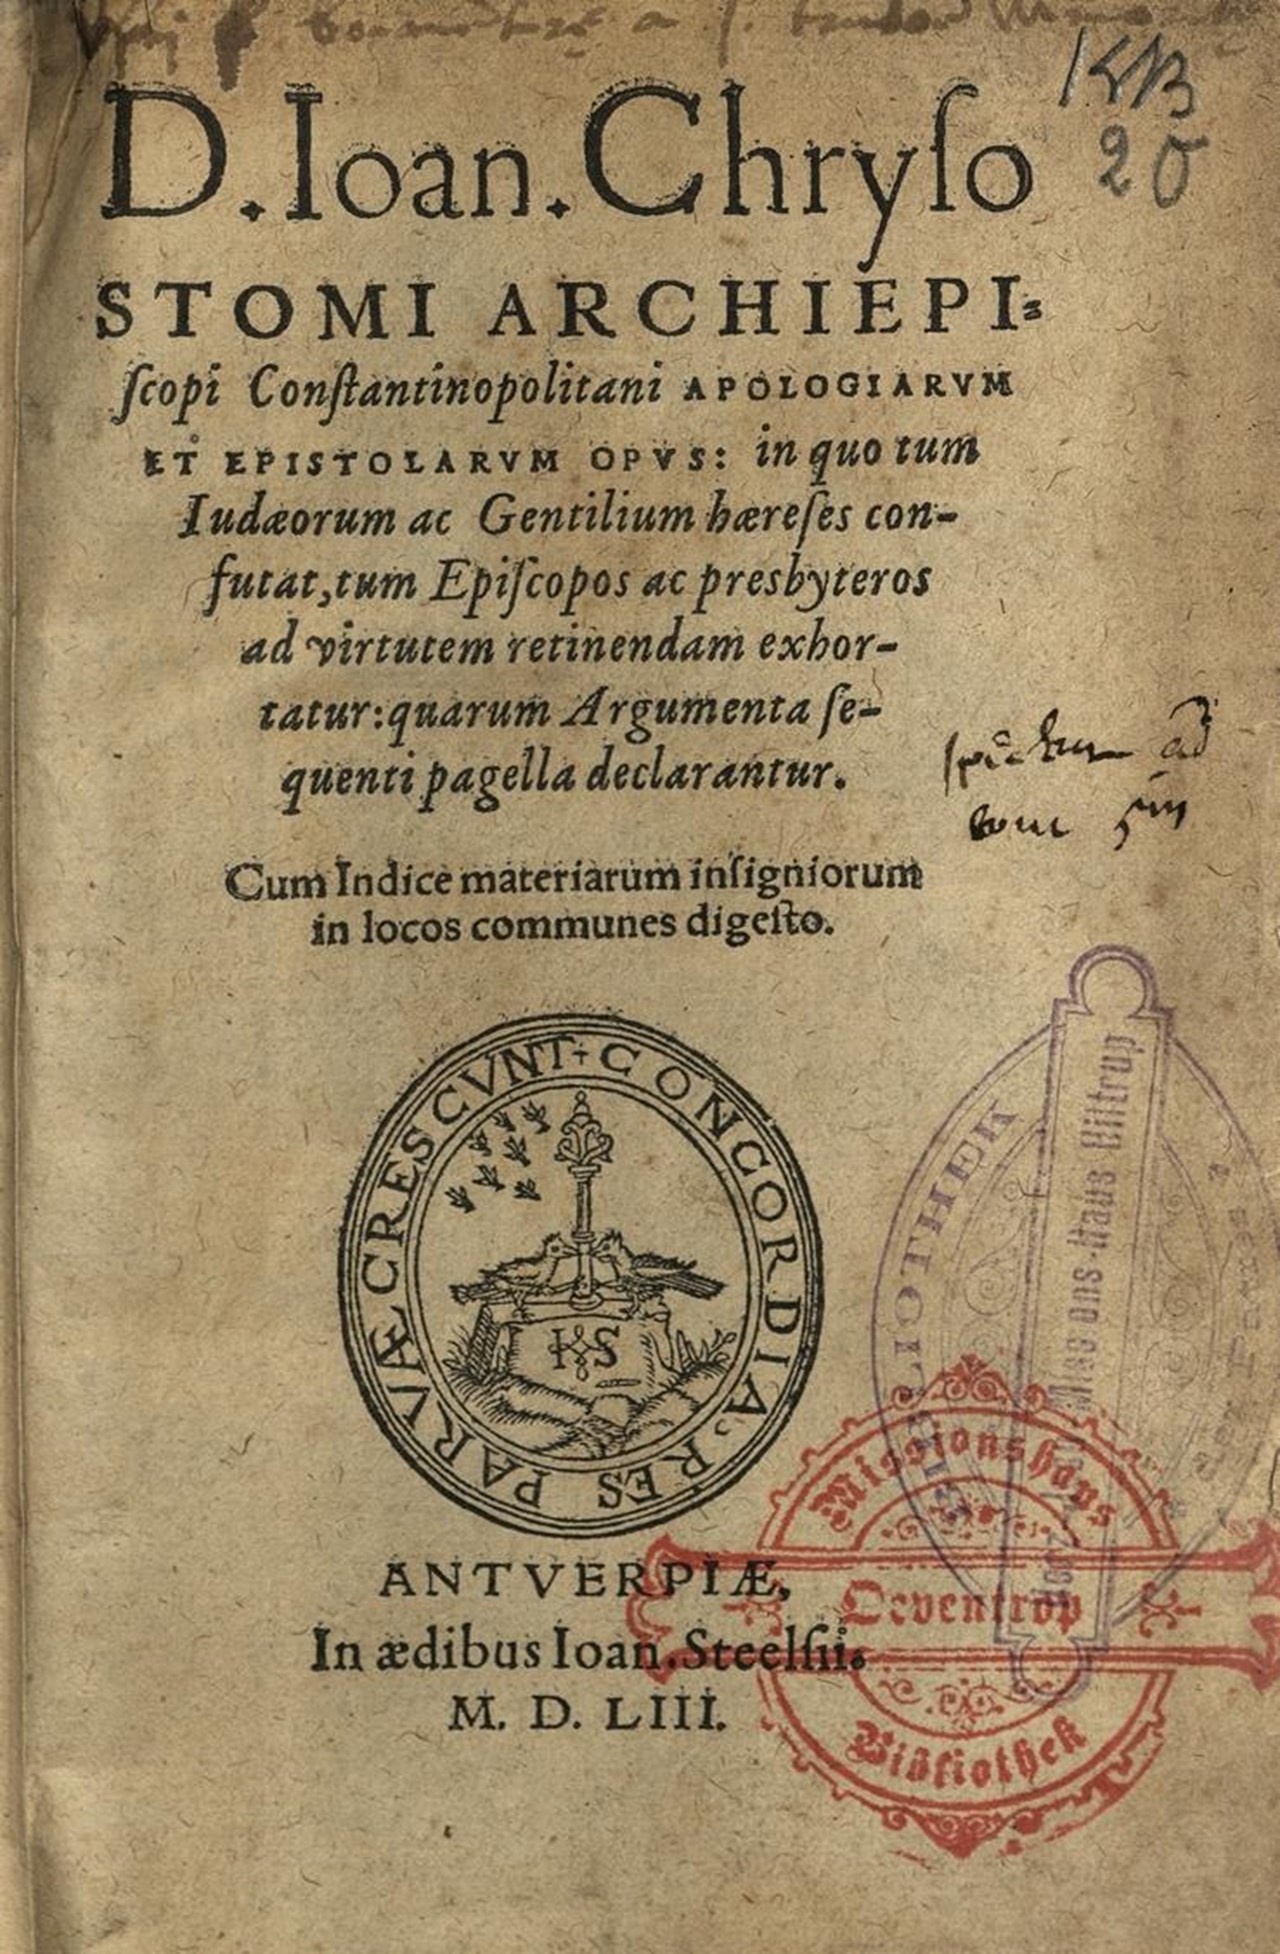 KB
20
D. Ioan. Chryſo
STOMI ARCHIEPI⸗
ſcopi Conſtantinopolitani APOLOGIARVM
ET EPISTOLARVM OPVS: in quo tum
Iudæorum ac Gentilium hæreſes con-
futat, tum Epiſcopos ac presbyteros
ad virtutem retinendam exhor-
tatur: quarum Argumenta ſe-
quenti pagella declarantur.
Cum Indice materiarum inſigniorum
in locos communes digeſto.
CONCORDIA. RES PARVÆ CRESCVNT
ANTVERPIÆ,
In ædibus Ioan. Steelſii.
M. D. LIII.
Missionshaus
Oeventrop
Bibliothek
Hiltrup